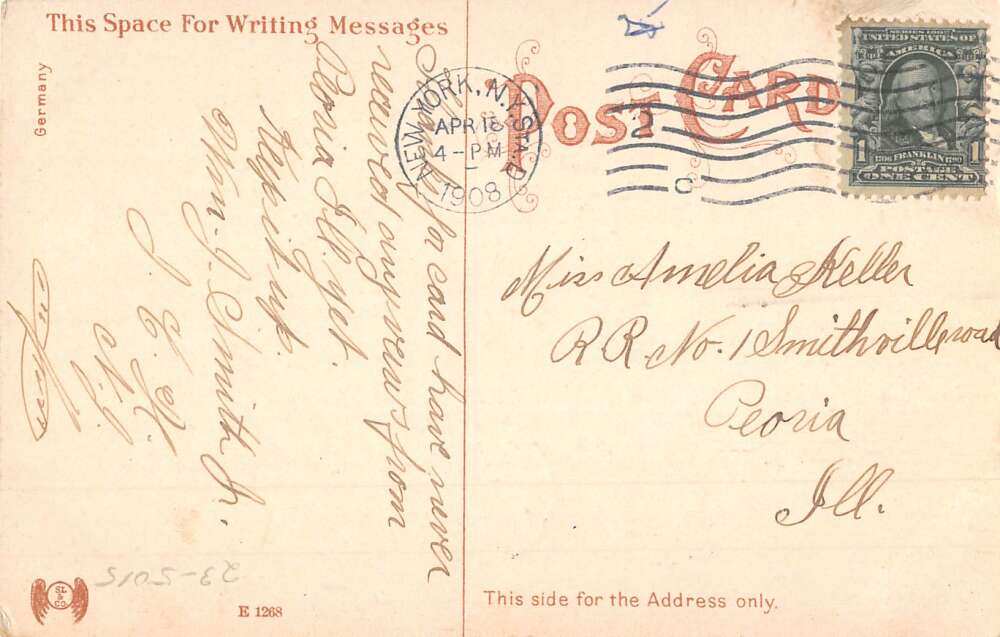 This Space For Writing Messages
Germany
Thanks for card have never
received any views from
Peoria Ill. yet.
Keep it up.
Wm. J. Smith Jr.
N.J.
POST CARD
NEW YORK, N.Y. STA. D
APR 18
4-PM
1908
2
C
SERIES 1902
UNITED STATES OF
AMERICA
1 1
1706 FRANKLIN 1790
POSTAGE
ONE CENT
Miss Amelia Keller
R R No. 1 Smithville road
Peoria
Ill.
23-5015
SL
&
CO.
E 1268
This side for the Address only.